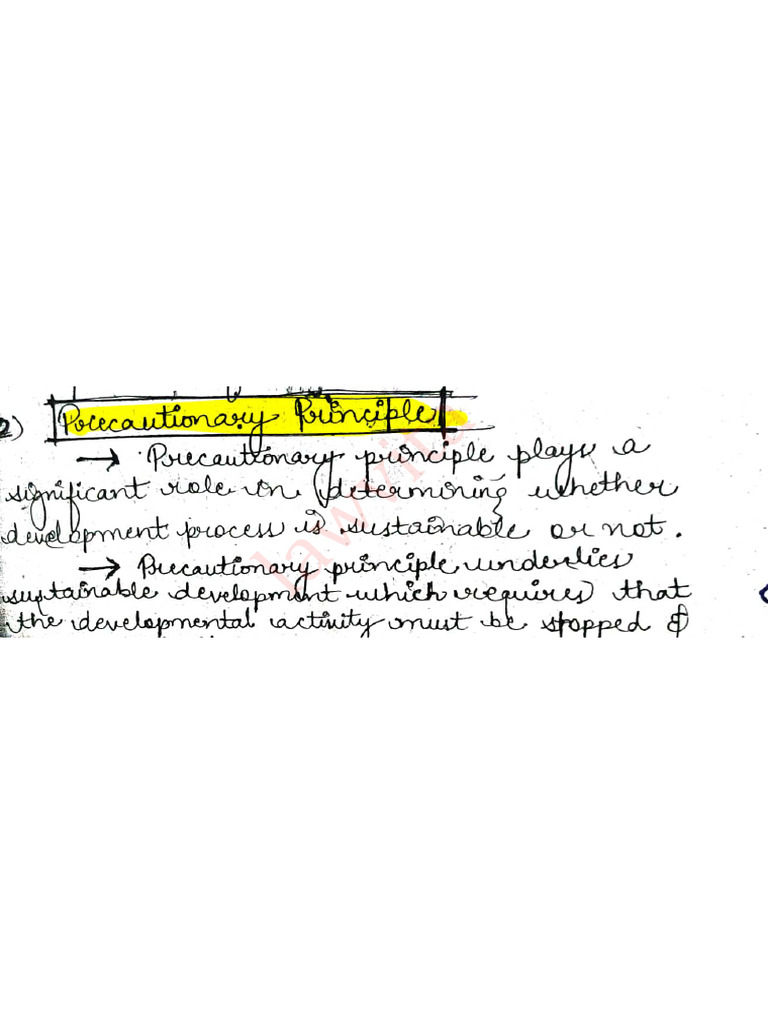 2) Precautionary Principle
→ Precautionary principle plays a
significant role in determining whether
development process is sustainable or not.
→ Precautionary principle underlies
sustainable development which requires that
the developmental activity must be stopped &